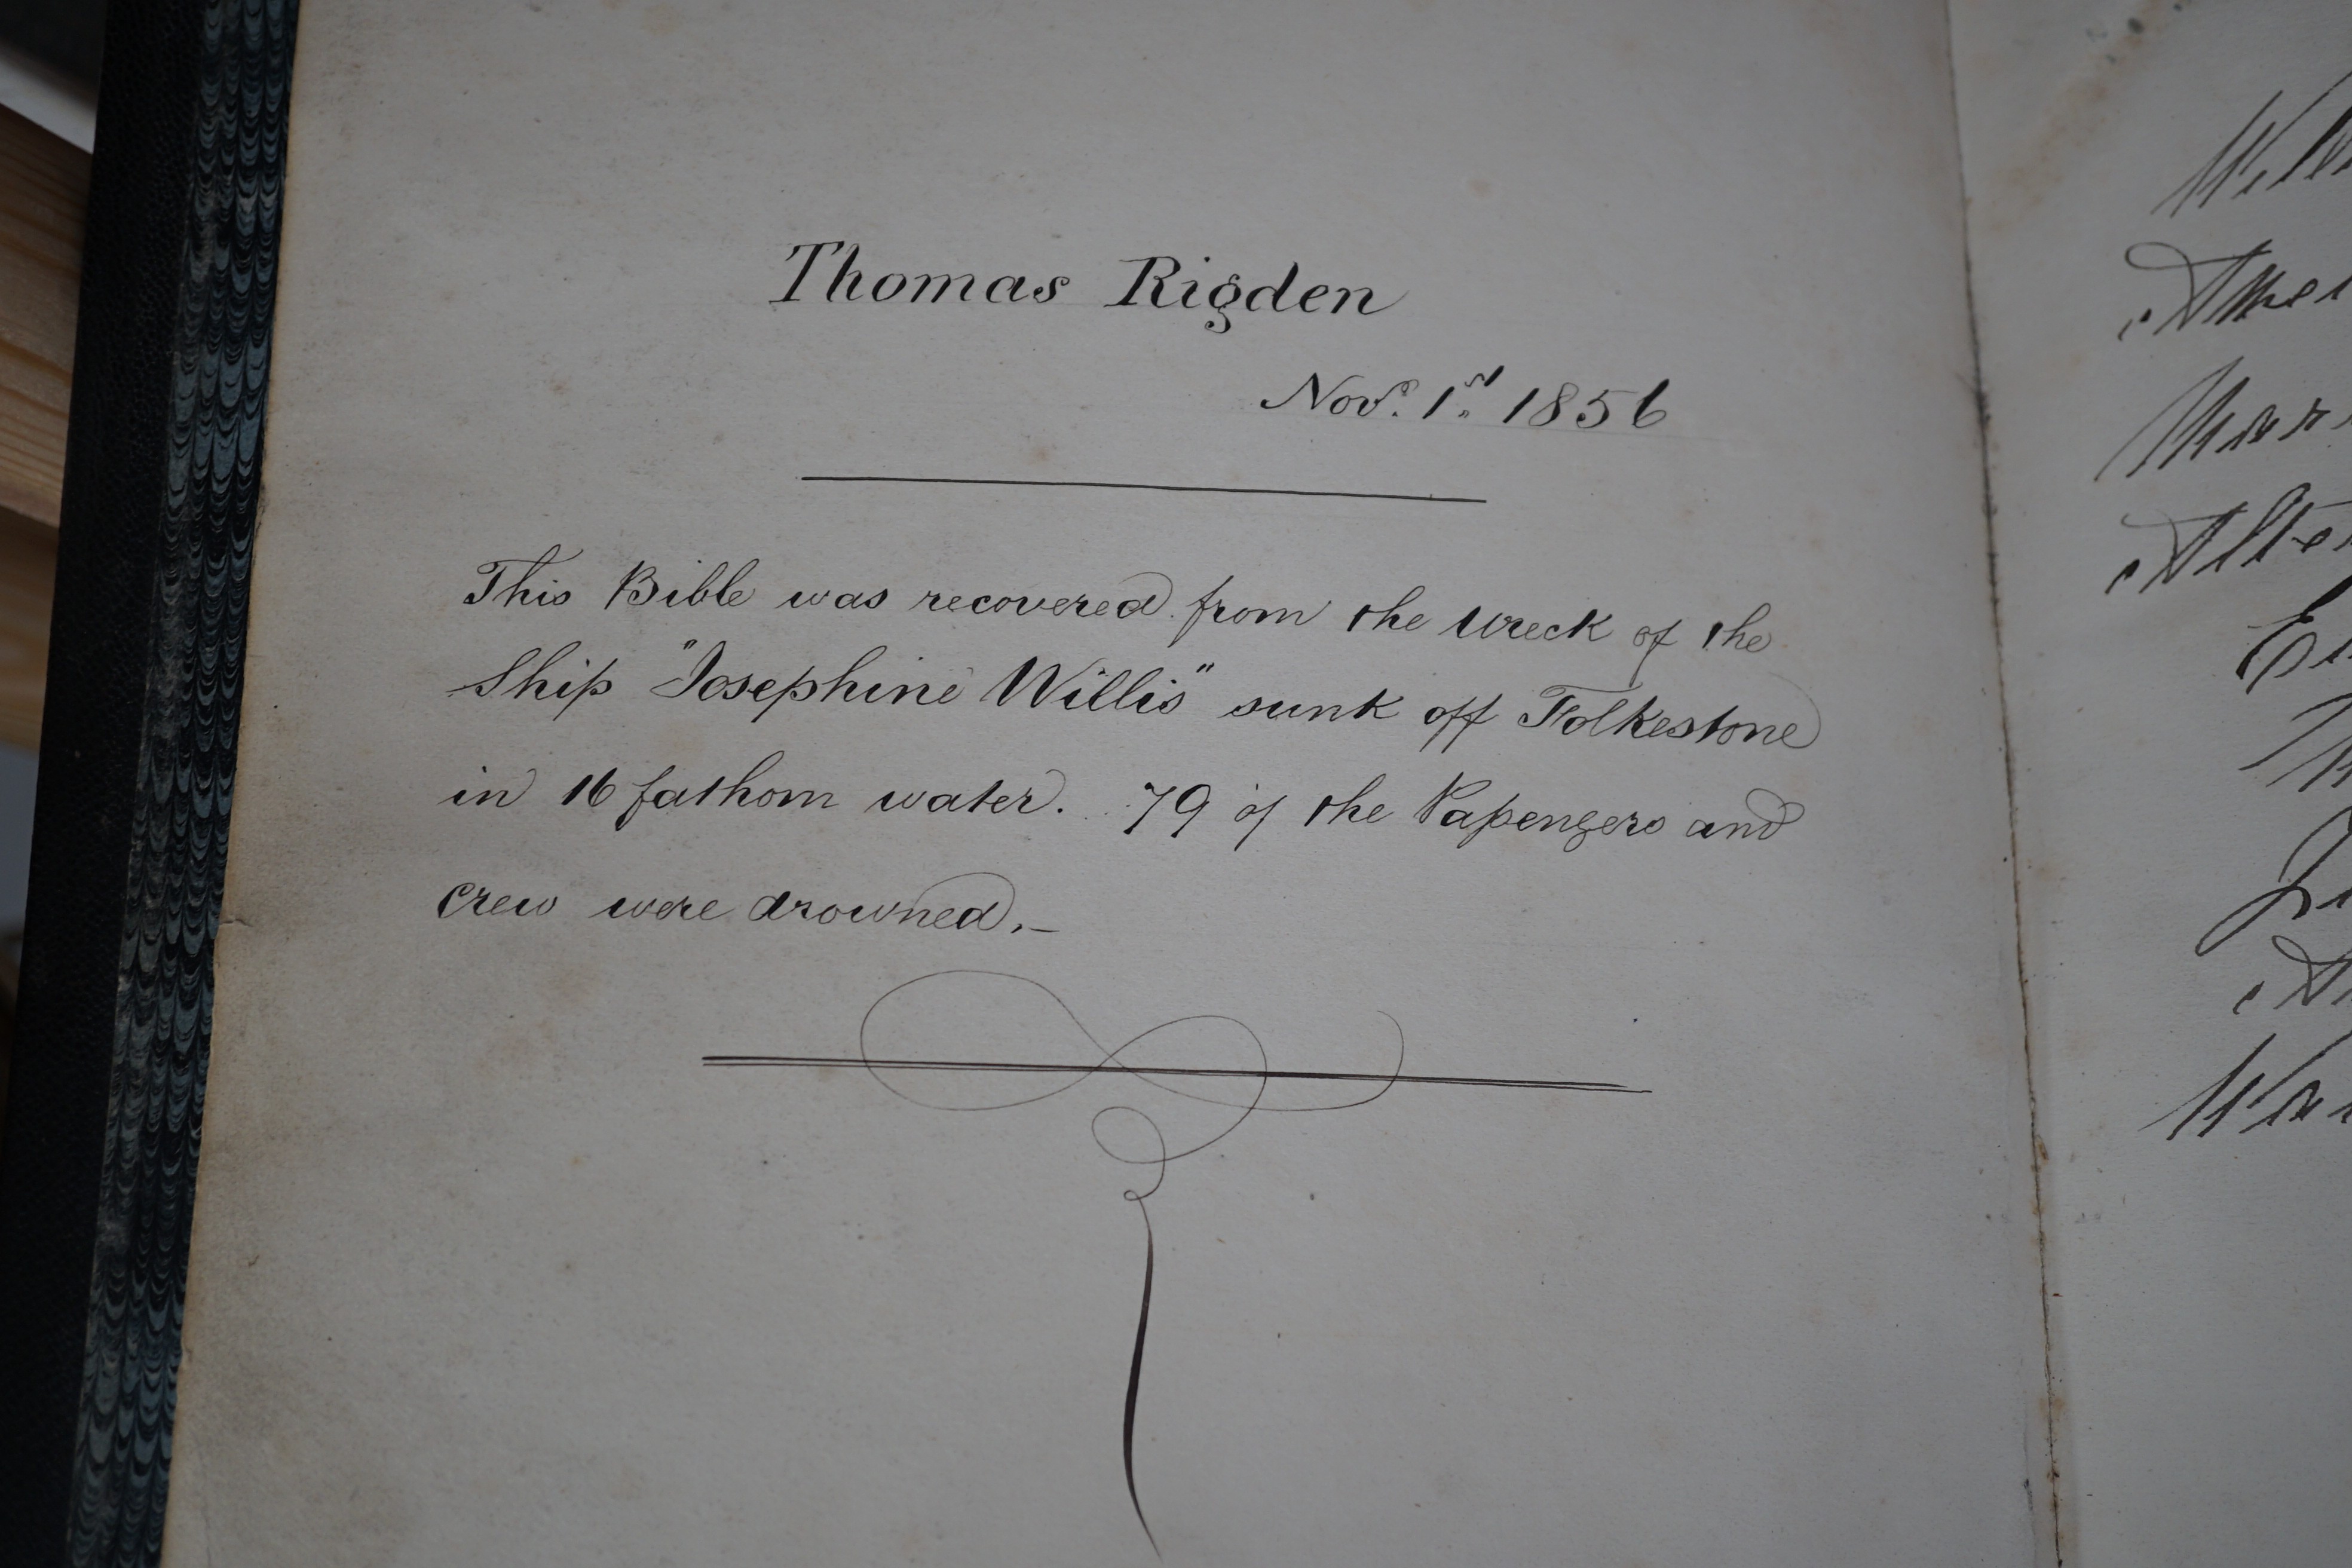 Thomas Rigden
Novr. 1st. 1856
This Bible was recovered from the wreck of the
Ship "Josephine Willis" sunk off Folkestone
in 16 fathom water. 79 of the Paſsengers and
crew were drowned.–